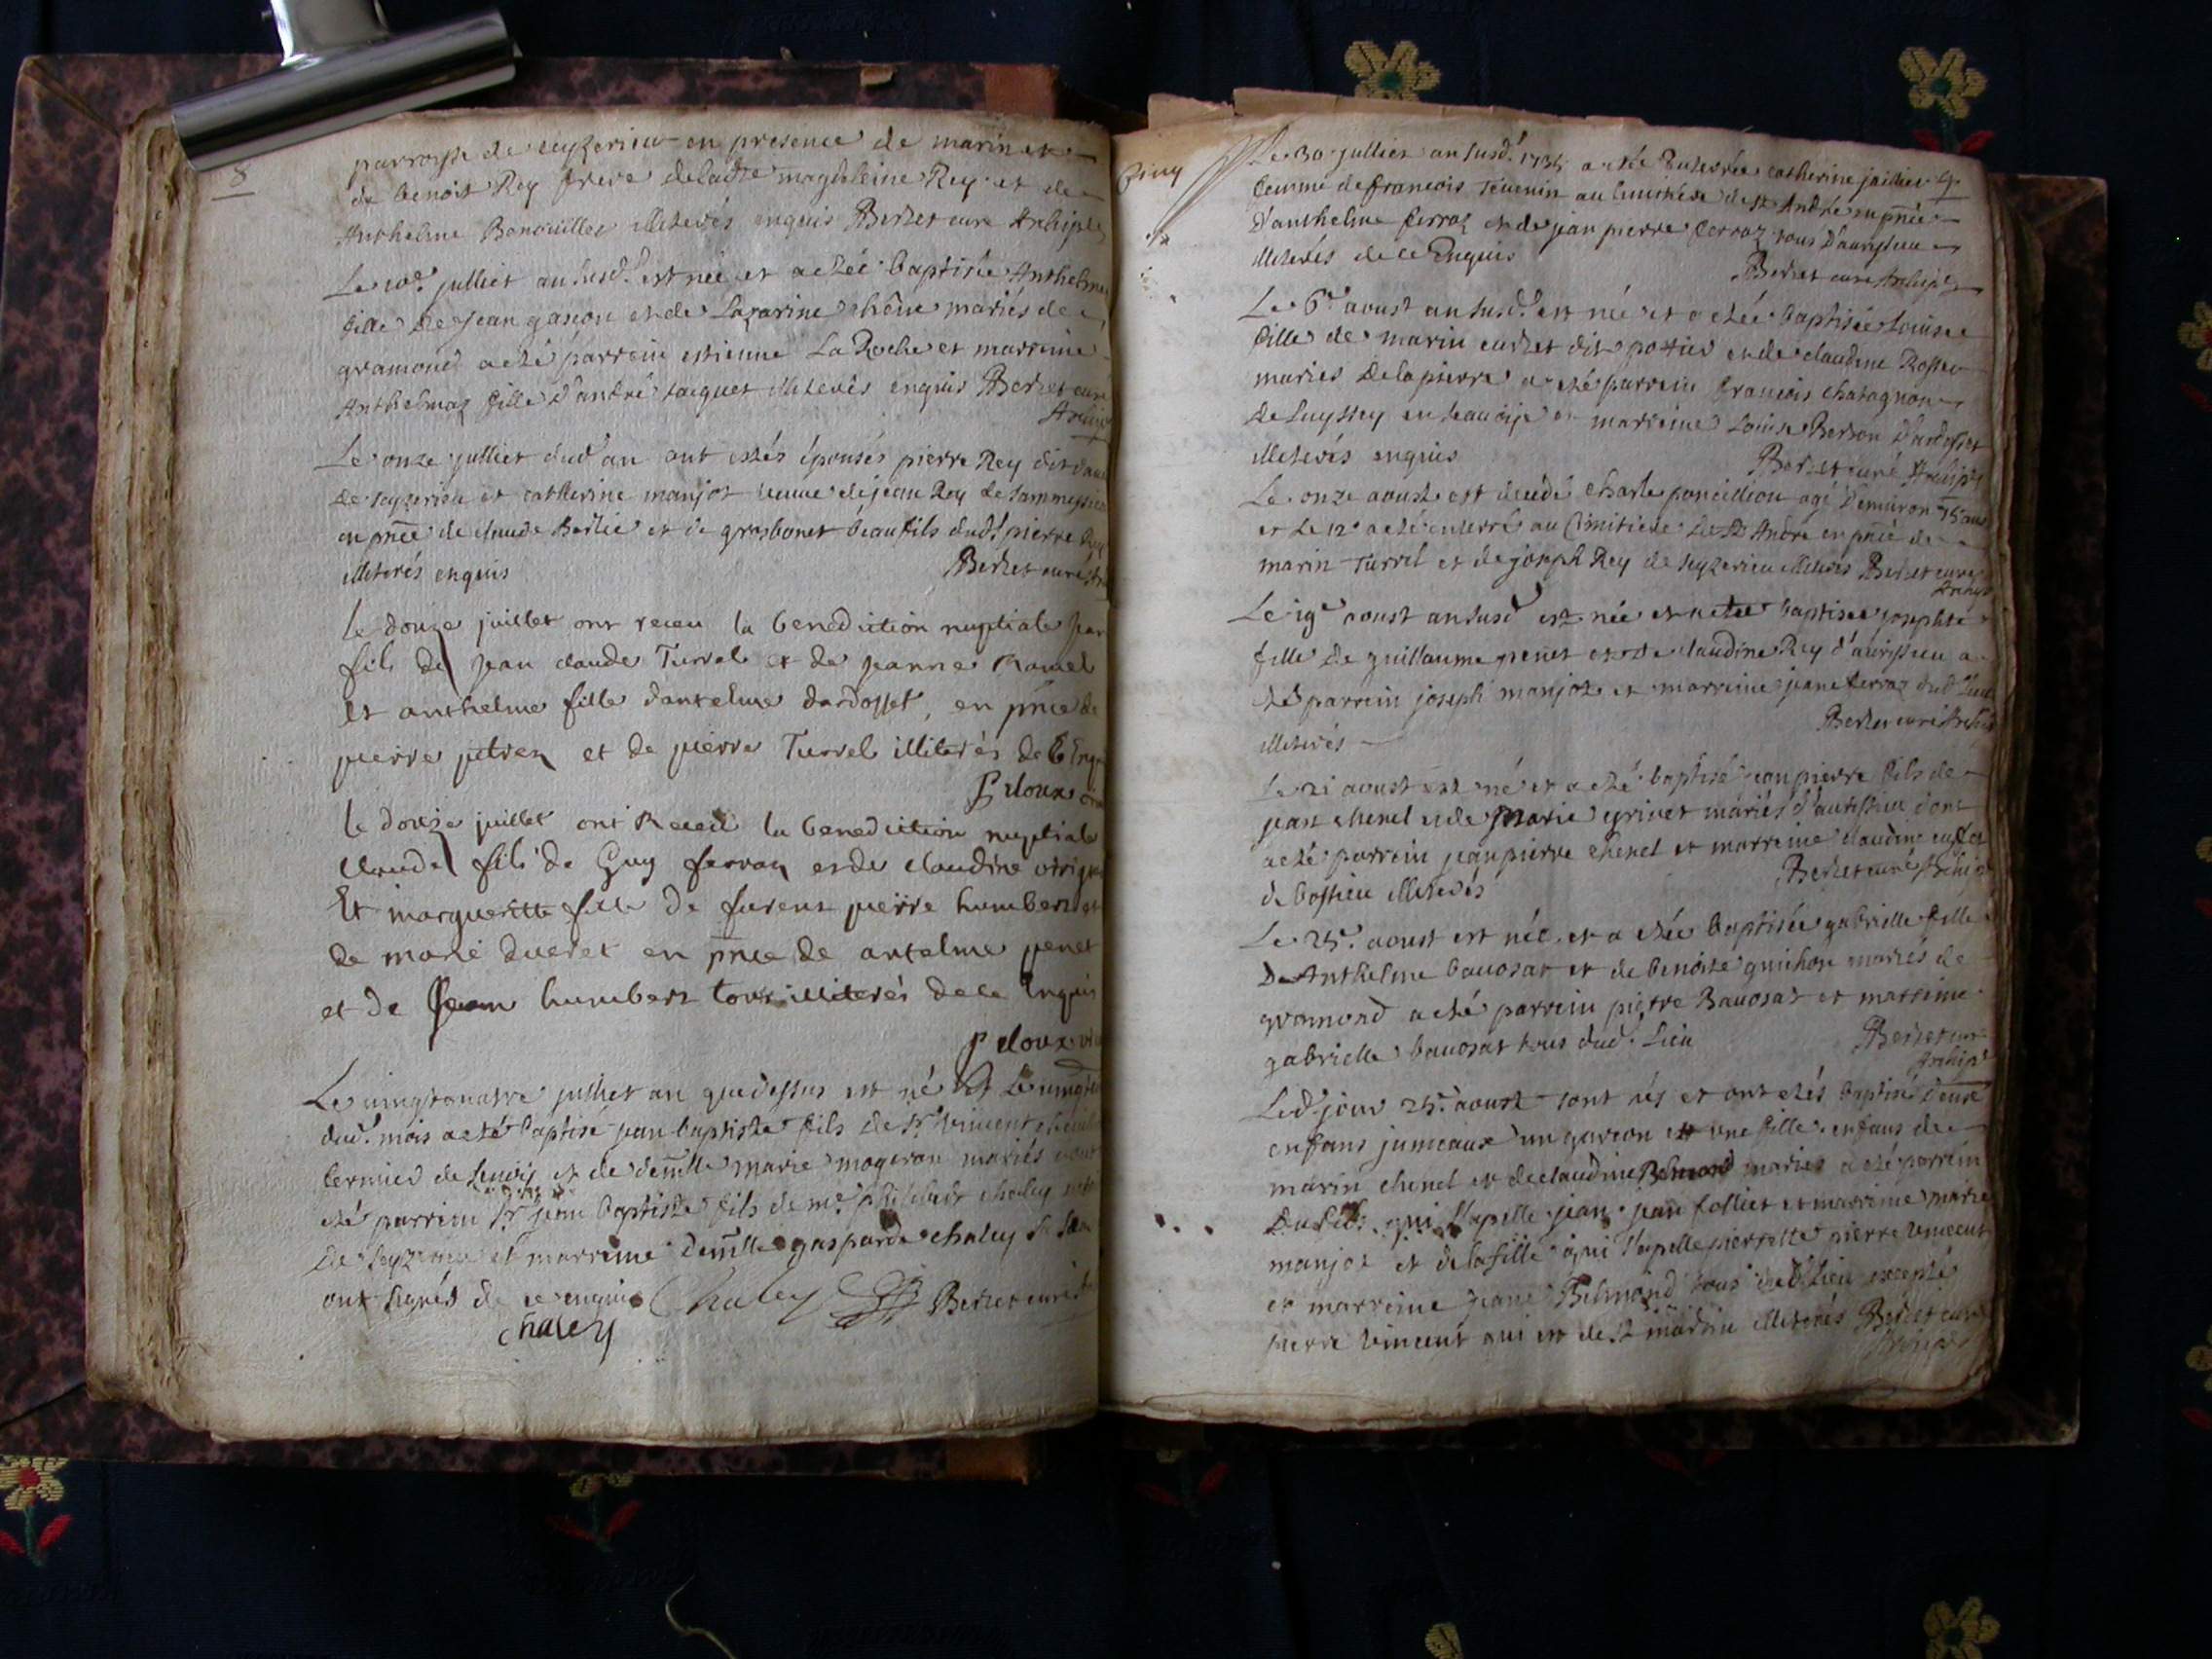 8
parroisse de seyzerieu en presence de marin et
de benoit Rey frere de ladte magdeleine Rey et de
Anthelme Bonouillet illiterés enquis Berlet curé Archiptre
Le 10e juillet an susd. est née et a été baptisée Anthelme
fille de jean gascon et de Lazarine chêne mariés de
gramond a eté parrein estienne La Roche et marreine
Anthelmaz fille d'andré jacquet illiterés enquis Berlet curé
Archip
Le onze juillet dud an ont estés épousés pierre Rey dit
de seyzerieu et catherine manjot veuve de jean Rey de
en pnce de claude Berlie et de grosbonet beau fils dud. pierre Rey
illiterés enquis Berlet curé
le douze juillet ont receu la benediction nuptiale jean
fils de jean claude Turrel et de jeanne Ramel
et anthelme fille dantelme dardosset, en pnce de
pierre et de pierre Turrel illiterés de ce Enq
P deloux
le douze juillet ont Receu la benediction nuptiale
claude fils de Guy ferraz et de claudine
Et margueritte fille de furent pierre humbert et
de marie ducret en pnce de antelme penet
et de jean humbert tous illiterés de ce Enquis
P deloux
Le vingt quatre juillet an que dessus est né et Le vingt
dud. mois a eté baptisé jean baptiste fils de Sr vincent
fermier de et de demlle marie mogeron mariés
eté parrein Sr jean baptiste fils de me philibert chaley
de seyzerieu et marreine demlle gasparde chaley
ont signés de ce enquis Chaley Berlet curé
chaley
Cinq
Le 30 juillet an susd. 1735 a eté Enterrée catherine jaillet 4
femme de francois Tevenin au cimitiere de St André en pnce
d'anthelme ferraz et de jean pierre ferraz tous d'aurissieu
illiterés de ce Enquis
Berlet curé Archipr
Le 6e aoust an susd. est née et a etée baptisée Louise
fille de marin curtet dit pottier et de claudine Rosset
mariés de lapierre a eté parrein francois chatagnon
de Luyssey en beauvije et marreine Louise Berson d'ardosset
illiterés enquis
Berlet curé Archipr
Le onze aoust est decedé charle poncillion agé d'environ 75 ans
et Le 12e a eté enterré au Cimitiere de St André en pnce de
marin Turrel et de joseph Rey de seyzerieu illiterés Berlet curé
Archip
Le 19e aoust an susd est née et a etée baptisée josephte
fille de guillaume penet et de claudine Rey d'aurissieu a
eté parrein joseph manjot et marreine jeane ferraz dud Lieu
illiterés Berlet curé Archip
Le 21 aoust est né et a eté baptisé jean pierre fils de
jean chenel et de Marie grinet mariés d'aurissieu dont
a eté parrein jean pierre chenel et marreine claudine
de bossieu illiterés Berlet curé Archip
Le 25e. aoust est née et a etée baptisée gabrielle fille
De Anthelme bavosat et de benoite guichon mariés de
gramond a eté parrein pierre Bavosat et marreine
gabrielle bavosat tous dud. Lieu Berlet cur
Archipr
Led. jour 25e. aoust sont nés et ont etés baptisé deux
enfans jumeaux un garcon et une fille enfans de
marin chenel et de claudine Belmond mariés a eté parrein
Du fils qui s'apelle jean jean follliet et marreine marie
manjot et de la fille qui s'apelle pierrette pierre vincent
et marreine jeane Belmond tous dud. Lieu excepté
pierre vincent qui est de St martin illiterés Berlet curé
Archipr